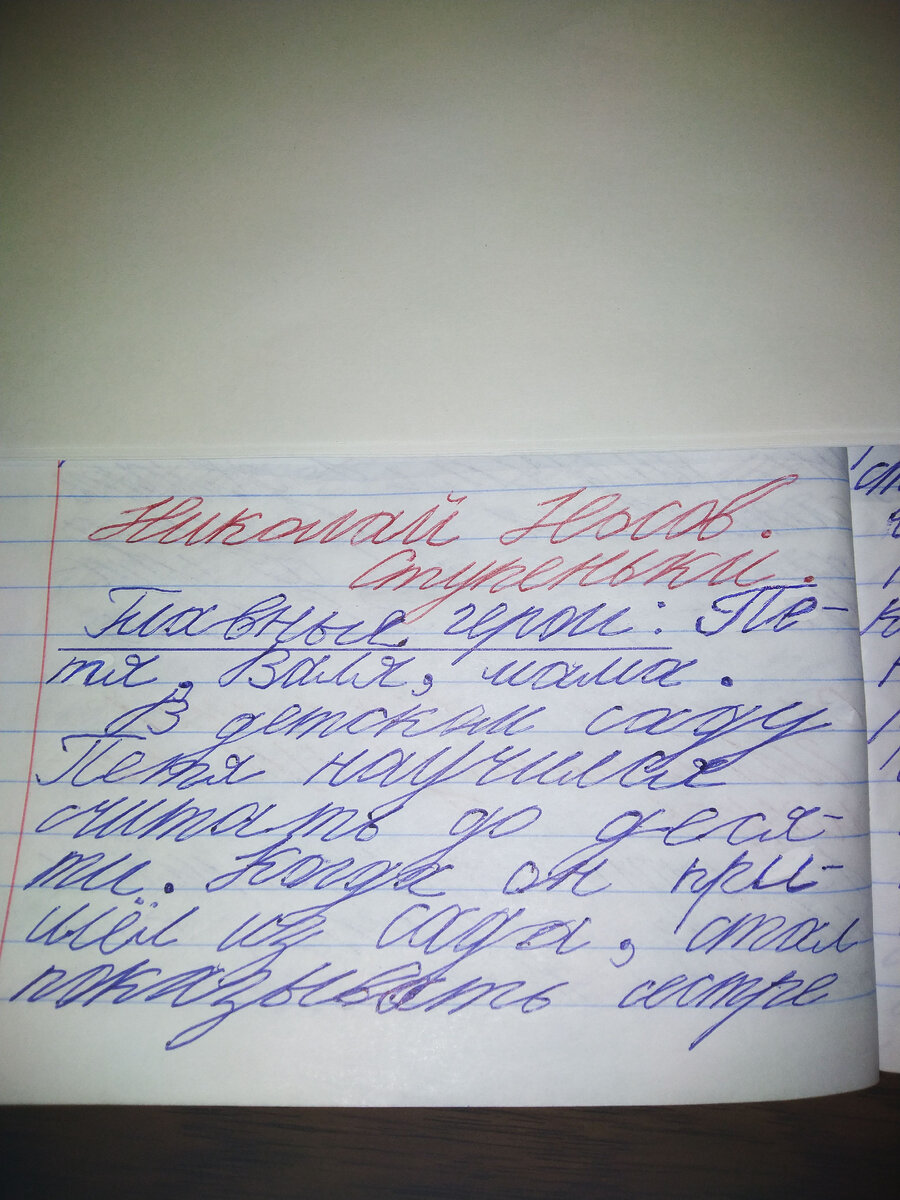 Николай Носов.
Ступеньки.
Главные герои: Пе-
тя, Валя, мама.
В детском саду
Петя научился
считать до деся-
ти. Когда он при-
шёл из сада, стал
показывать сестре